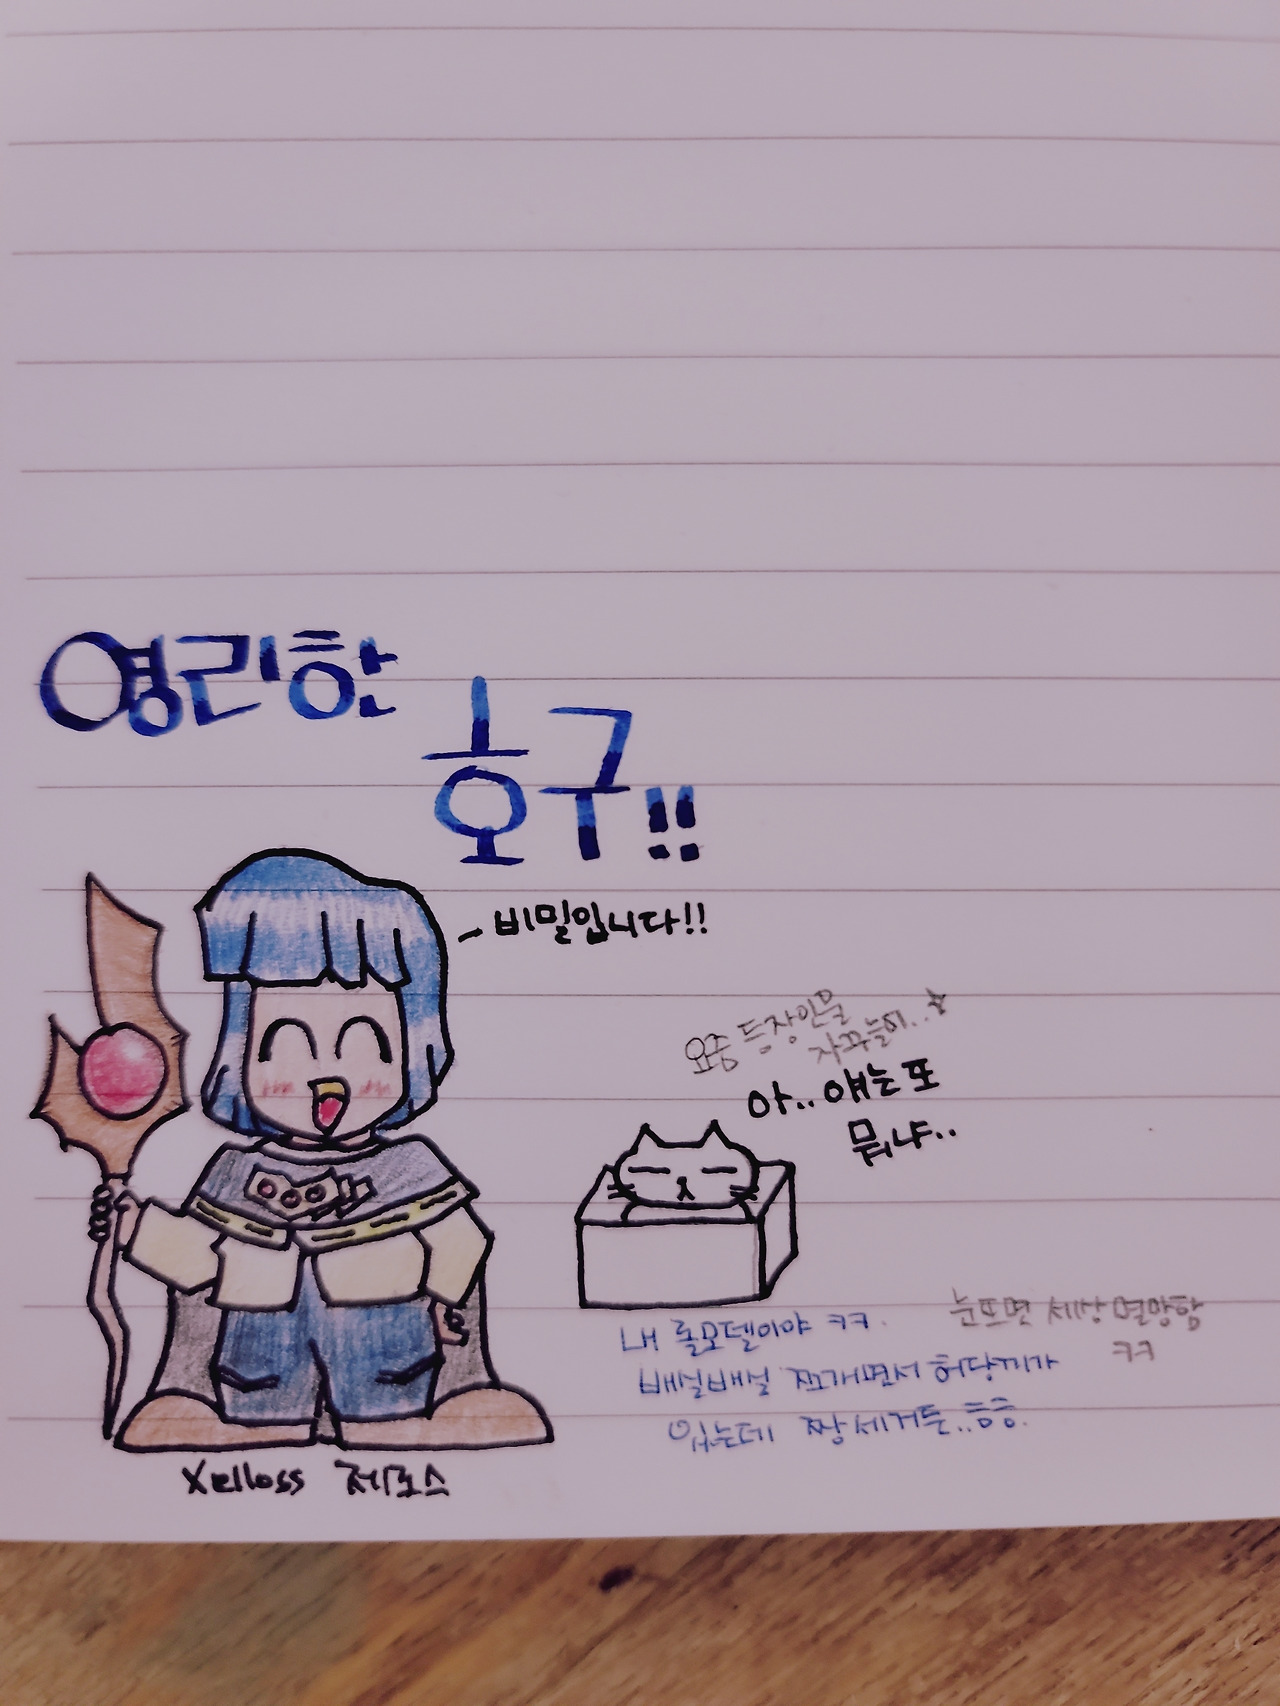 영리한
호구!!
비밀입니다!!
요즘 등장인물
자꾸늘어..☆
아.. 얘는 또
뭐냐..
눈뜨면 세상 멸망함
ㅋㅋ
내 롤모델이야 ㅋㅋ.
배실배실 쪼개면서 허당끼가
있는데 짱 세거든..흠흠.
Xelloss 제로스